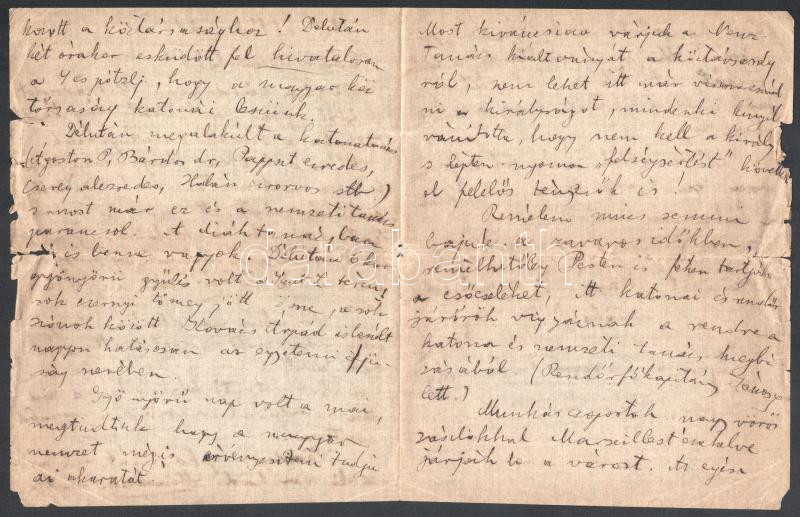 között a köztársasághoz! Délután
két órakor esküdött fel hivatalosan
a 4es pótzlj, hogy a magyar köz
társaság katonái leszünk.
Délután megalakult a katonatanács
(Ágoston P, Bárdos dr, Pappst ezredes,
Cserey alezredes, ezorvos stb.)
s most már ez és a nemzeti tanács
parancsol. A diáktanácsban
is benne vagyok. Délután 6 kor
gyönyörű gyűlés volt a téren
sok ezernyi tömeg jött össze, a sok
szónok között Kovács Árpád is beszélt
nagyon hatásosan az egyetemi ifjú-
ság nevében.
Gyönyörű nap volt a mai,
megtudtuk hogy a magyar
nemzet mégis érvényesíteni tudja
az akaratát.
Most kiváncsian várjuk a Nemz.
Tanács kiáltványát a köztársaság
ról, nem lehet itt már
ni a királyságot, mindenki kinyil
vánította, hogy nem kell a király
s lépten-nyomon "felségsértést" követtek
el felelős tényezők is!
Remélem nincs semmi
bajuk a zavaros időkben,
remélhetőleg Pesten is féken tartják
a csőcseléket, itt katonai és rendőr
járőrök vigyáznak a rendre a
katona és nemzeti tanács megbí
zásából. (Rendőrfőkapitány
lett.)
Munkáscsoportok nagy vörös
zászlókkal Marseillest énekelve
járják be a várost. Az egész
darabanth